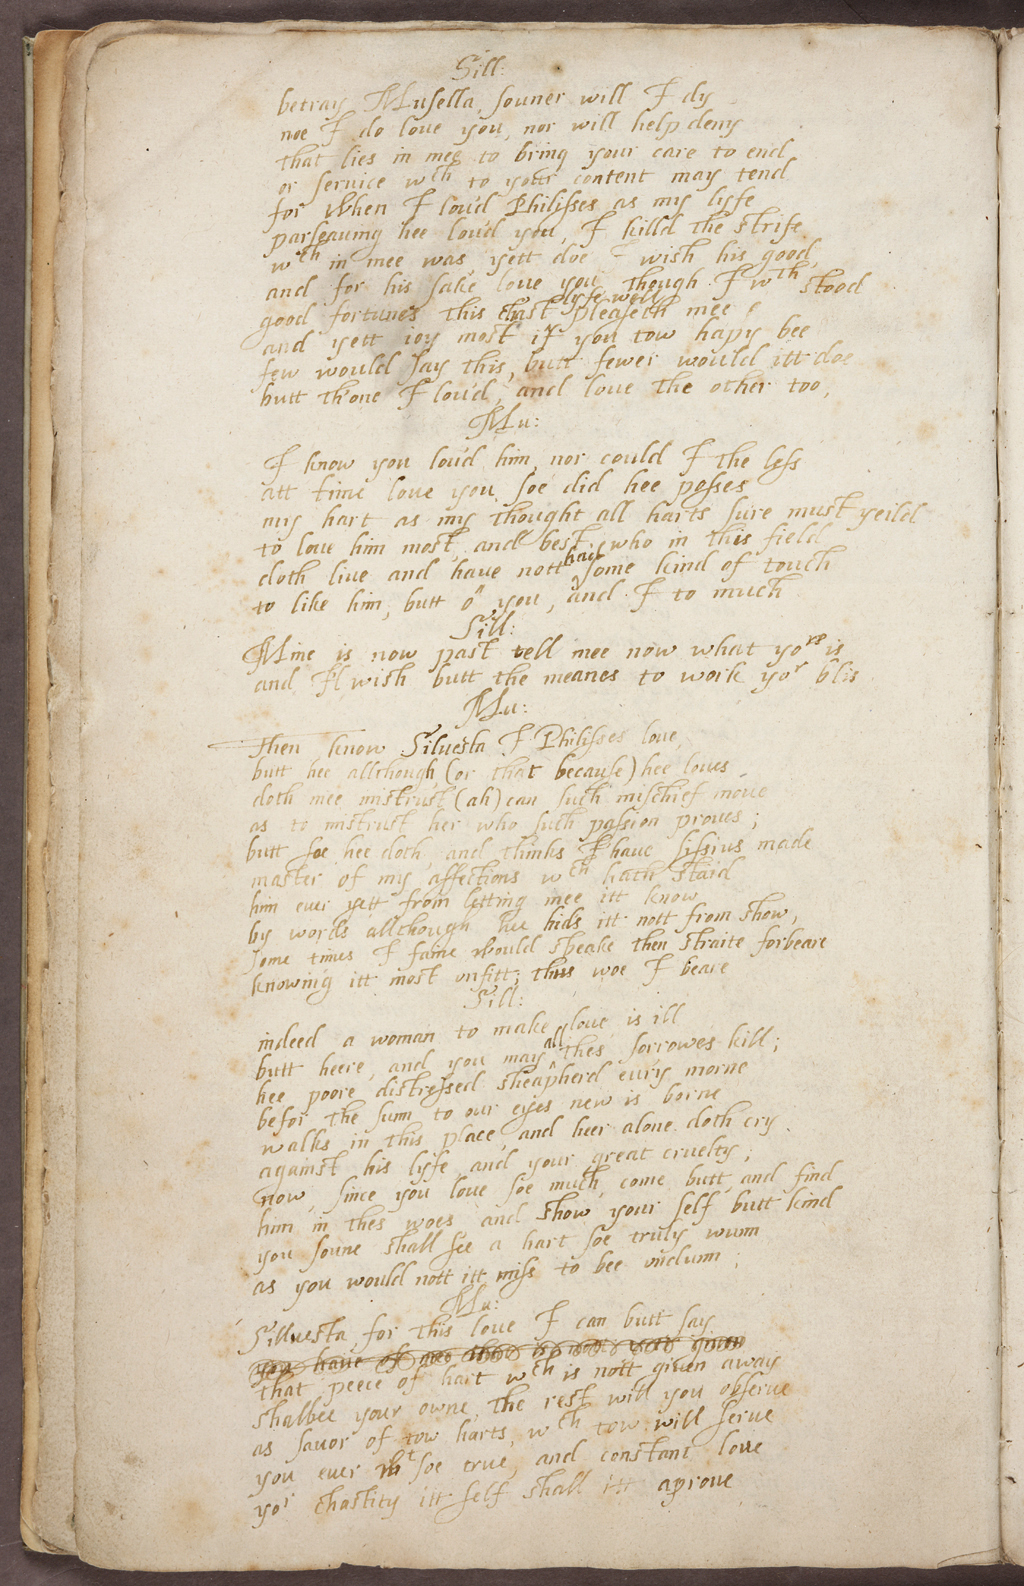 Sill:
betray Musella, souner will I dy
noe I do loue you, nor will help deny
that lies in mee to bring your care to end
or seruice wch to your content may tend
for when I lou'd Philisses as my lyfe
parseauing hee lou'd you, I killd the strife
wch in mee was, yett doe I wish his good,
and for his sake loue you, though I wthstood
good fortunes this chast lyfe well pleaseth mee
and yett ioy most if you tow hapy bee
few would say this, butt fewer would itt doe
butt th'one I lou'd, and loue the other too,
Mu:
I know you lou'd him, nor could I the less
att time loue you, soe did hee posses
my hart as my thought all harts sure must yeild
to loue him most, and best, who in this field
doth liue and haue nott had some kind of touch
to like him, butt ô you, and I to much
Sill:
Mine is now past tell mee now what yors is
and I'l wish butt the meanes to work yor blis
Mu:
Then know Siluesta I Philisses loue,
butt hee allthough, (or that because) hee loues
doth mee mistrust (ah) can such mischief moue
as to mistrust her who such passion proues;
butt soe hee doth, and thinks I haue Lissius made
master of my affections wch hath staid
him euer yett from letting mee itt know
by words allthough hee hids itt nott from show,
some times I faine would speake then straite forbeare
knowing itt most vnfitt; thus woe I beare
Sill:
indeed a woman to make loue is ill
butt heere, and you may all thes sorrowes kill;
hee poore distressed sheapherd eu'ry morne
befor the sunn to our eyes new is borne
walks in this place, and heer alone doth cry
against his lyfe, and your great cruelty;
now, since you loue soe much, come, butt and find
him in thes woes, and show your self butt kind
you soune shall see a hart soe truly wunn
as you would nott itt miss to bee vndunn;
Mu:
Silluesta for this loue I can butt say
you haue
that peece of hart wch is nott giuen away
shalbee your owne, the rest will you obserue
as sauor of tow harts, wch tow will serue
you euer wt soe true, and constant loue
yor chastity itt self shall itt aproue